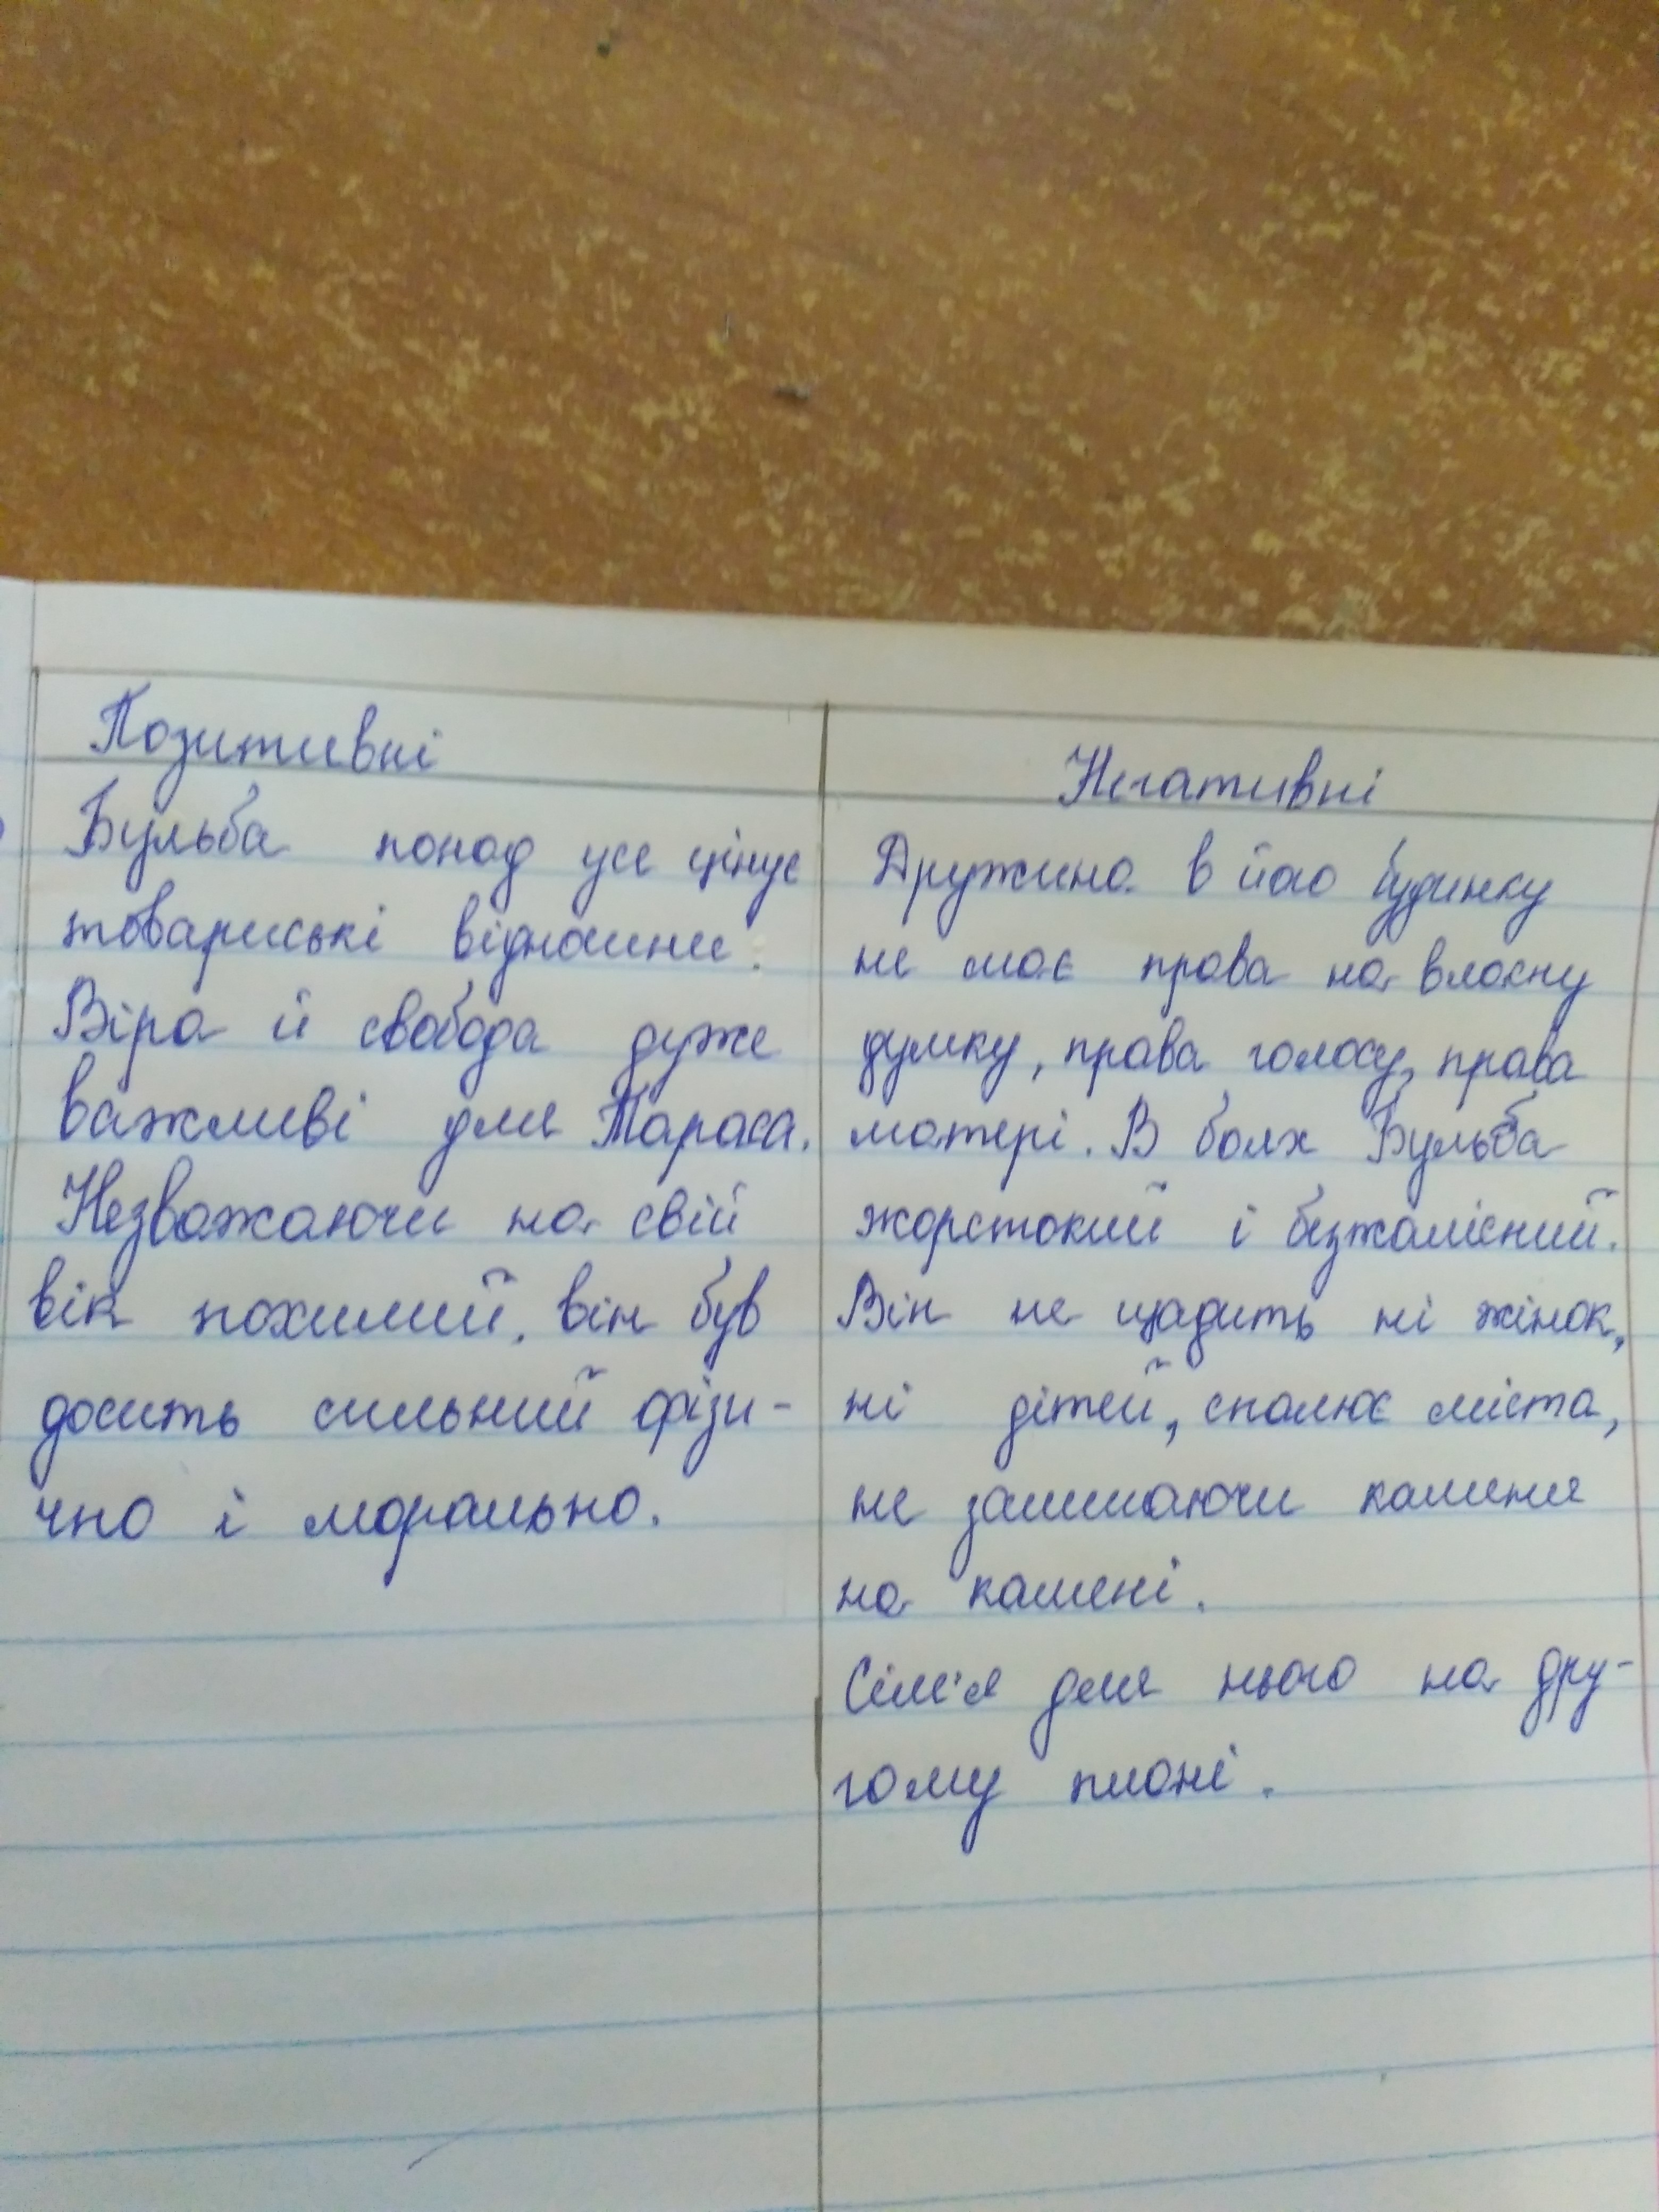 Позитивні
Бульба понад усе цінує
товариські відносини.
Віра й свобода дуже
важливі для Тараса.
Незважаючи на свій
вік похилий, він був
досить сильний фізи-
чно і морально.
Негативні
Дружина в його будинку
не має права на власну
думку, права голосу, права
матері. В боях Бульба
жорстокий і безжалісний.
Він не щадить ні жінок,
ні дітей, спалює міста,
не залишаючи каменя
на камені.
Сім'я для нього на дру-
гому плані.